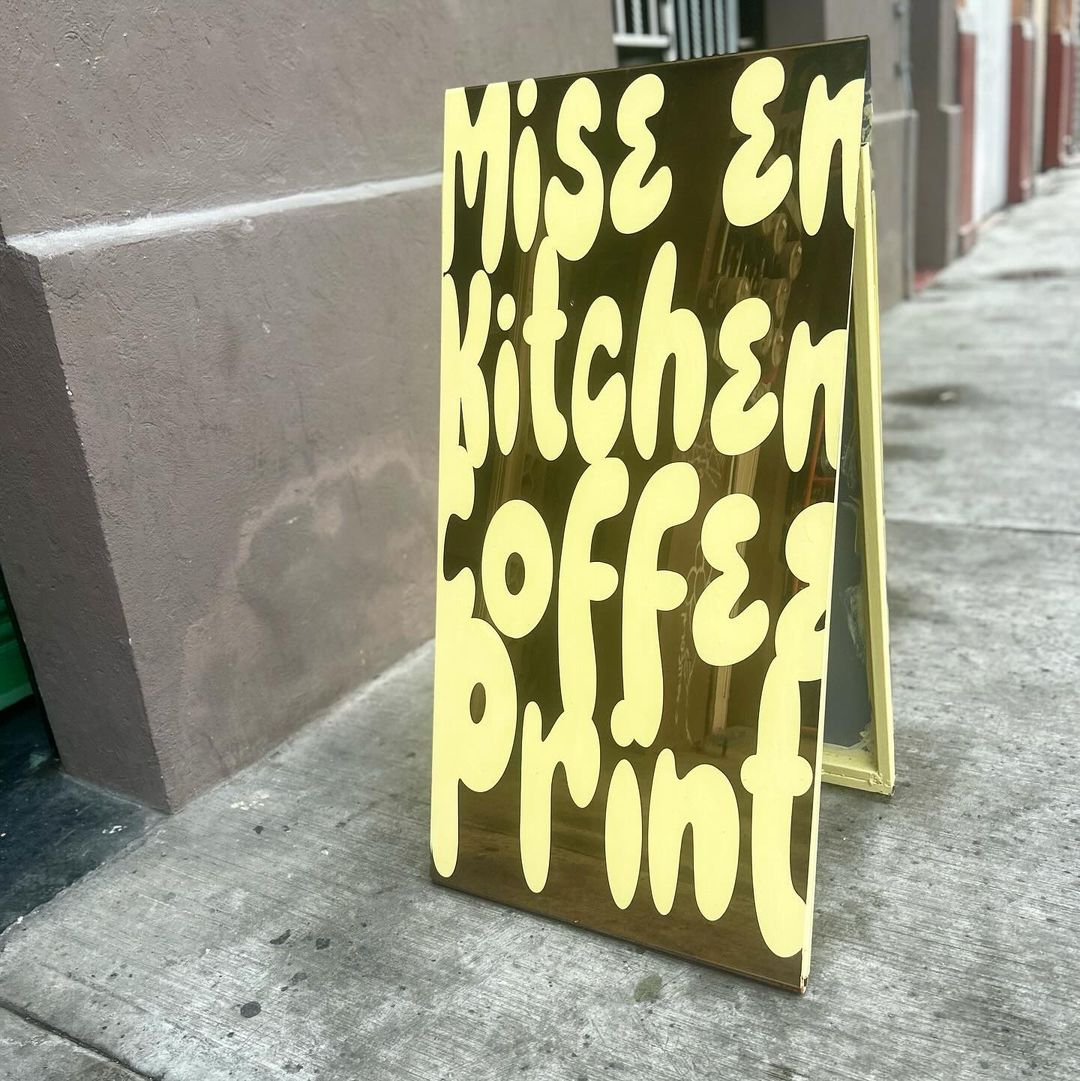 Mise En
Kitchen
Coffee
Print